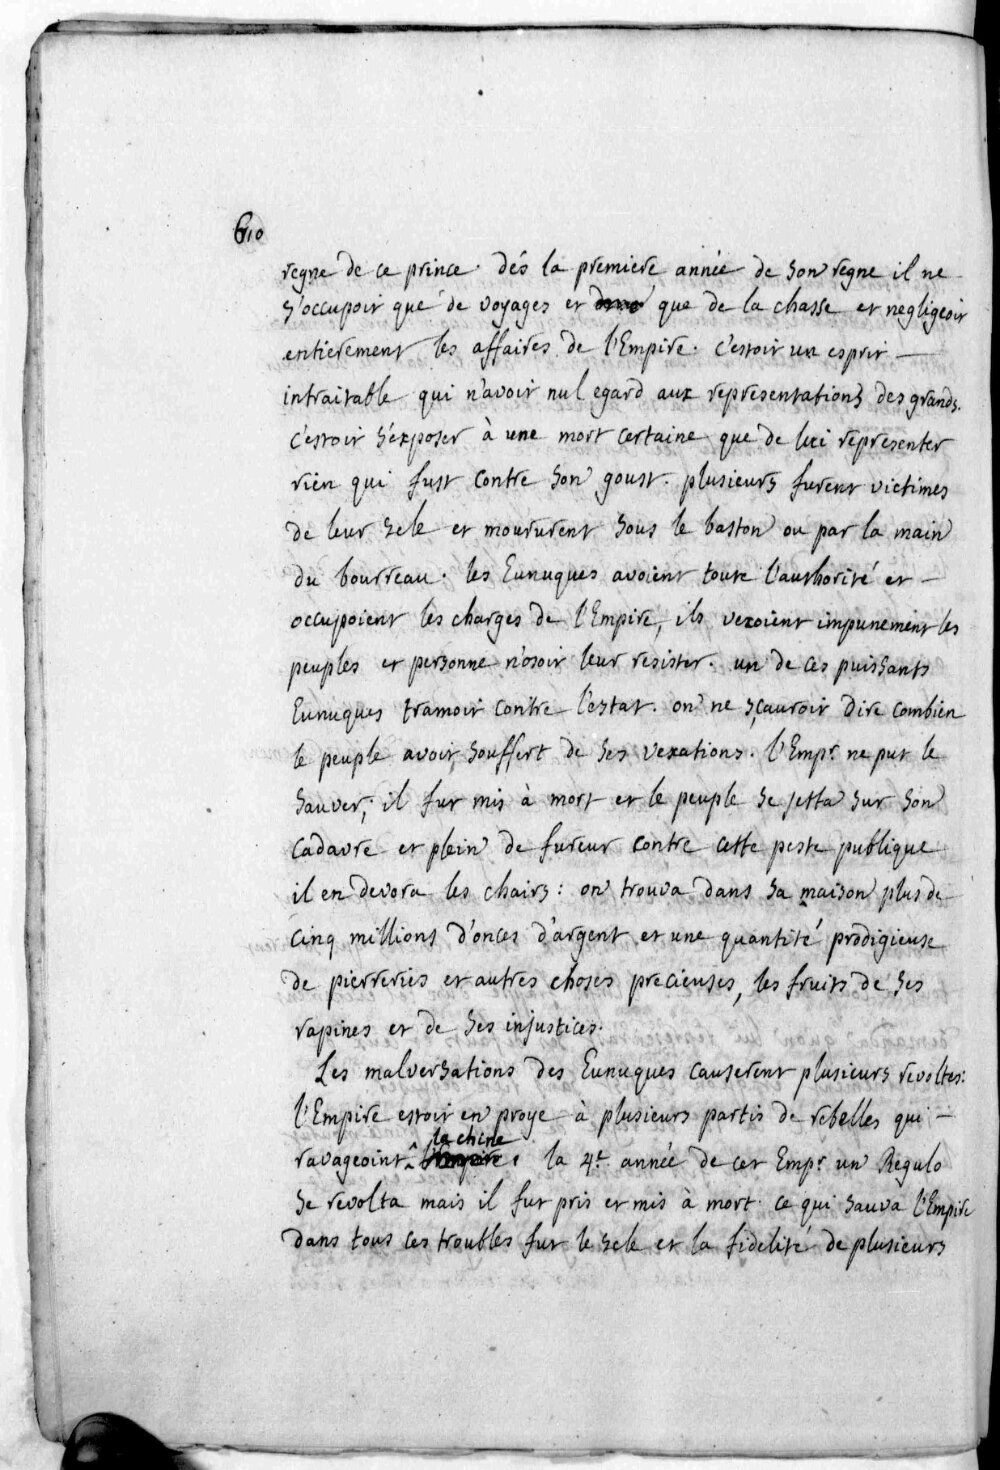 610
regne de ce prince. dés la premiere année de son regne il ne
s'occupoit que de voyages et que de la chasse et negligeoit
entierement les affaires de l'Empire. c'estoit un esprit
intraitable qui n'avoit nul egard aux representations des grands.
c'estoit s'exposer à une mort certaine que de lui representer
rien qui fust contre son goust. plusieurs furent victimes
de leur zele et moururent sous le baston ou par la main
du bourreau. les Eunuques avoient toute l'authorité et
occupoient les charges de l'Empire, ils vexoient impunement les
peuples et personne n'osoit leur resister. un de ces puissants
Eunuques tramoit contre l'estat. on ne sçauroit dire combien
le peuple avoit souffert de ses vexations. l'Empr. ne put le
sauver; il fut mis à mort et le peuple se jetta sur son
cadavre et plein de fureur contre cette peste publique
il en devora les chairs: on trouva dans sa maison plus de
cinq millions d'onces d'argent et une quantité prodigieuse
de pierreries et autres choses precieuses, les fruits de ses
rapines et de ses injustices.
Les malversations des Eunuques causerent plusieurs revoltes:
l'Empire estoit en proye à plusieurs partis de rebelles qui
ravageoint la chine. la 4e. année de cet Empr. un Regulo
se revolta mais il fut pris et mis à mort. ce qui sauva l'Empire
dans tous ces troubles fut le zele et la fidelité de plusieurs